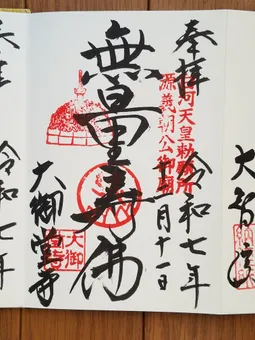 奉拝
河天皇勅願所
源義朝公御廟
令和七年
月十一日
無量寿佛
大御堂寺
大御堂寺
大智院
令和七年